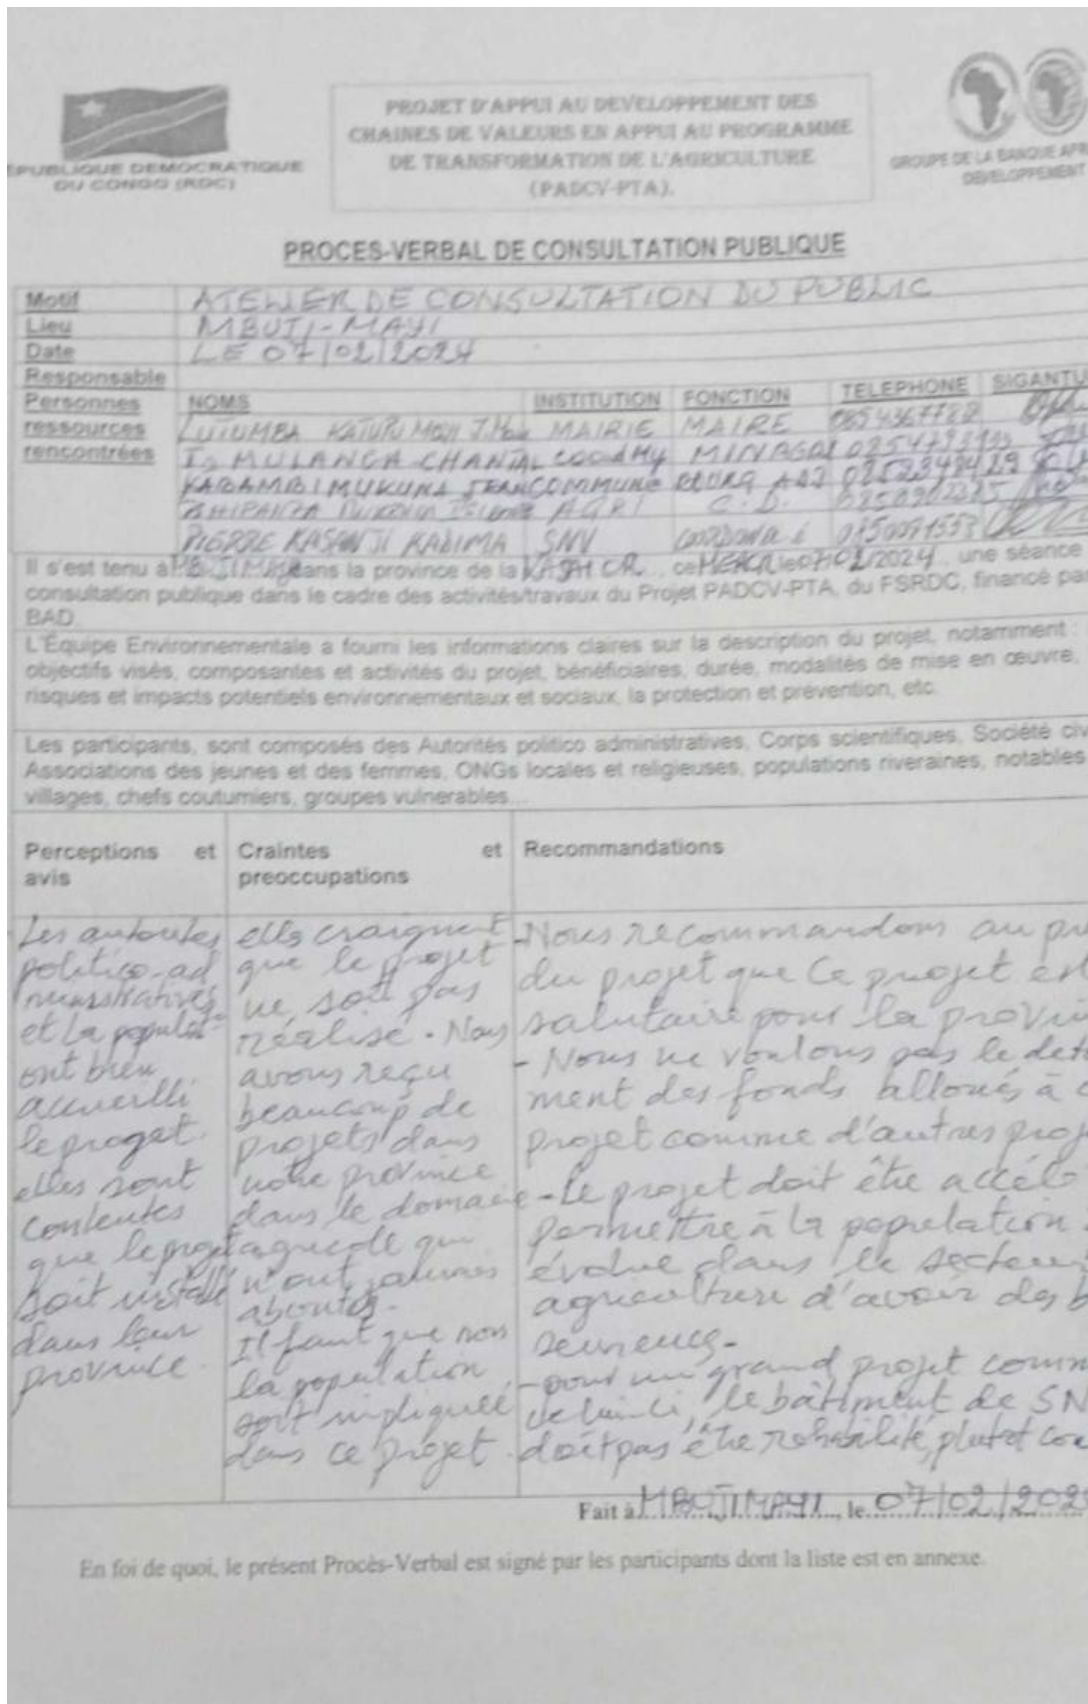 PROJET D'APPUI AU DEVELOPPEMENT DES
CHAINES DE VALEURS EN APPUI AU PROGRAMME
DE TRANSFORMATION DE L'AGRICULTURE
(PADCV-PTA).
EPUBLIQUE DEMOCRATIQUE
DU CONGO (RDC)
GROUPE DE LA BANQUE AFRI
DEVELOPPEMENT
PROCES-VERBAL DE CONSULTATION PUBLIQUE
Motif ATELIER DE CONSULTATION DU PUBLIC
Lieu MBUJI-MAYI
Date LE 07/02/2024
Responsable
Personnes ressources rencontrées
NOMS INSTITUTION FONCTION TELEPHONE SIGANTU
LUTUMBA MAIRIE MAIRE
MULANGA CHANTAL
KABAMBI MUKUNA JEAN COMMUNE
AGRI C.D.
PIERRE KASANJI KABIMA SNV
Il s'est tenu à MBUJIMAYI dans la province de la , ce le 07/02/2024 , une séance
consultation publique dans le cadre des activités/travaux du Projet PADCV-PTA, du FSRDC, financé par
BAD.
L'Équipe Environnementale a fourni les informations claires sur la description du projet, notamment :
objectifs visés, composantes et activités du projet, bénéficiaires, durée, modalités de mise en œuvre,
risques et impacts potentiels environnementaux et sociaux, la protection et prévention, etc.
Les participants, sont composés des Autorités politico administratives, Corps scientifiques, Société civ
Associations des jeunes et des femmes, ONGs locales et religieuses, populations riveraines, notables
villages, chefs coutumiers, groupes vulnerables...
Perceptions et
avis
Craintes et
preoccupations
Recommandations
Les autorités
politico-ad
ministratives
et la populat°
ont bien
accueilli
le projet.
elles sont
contentes
que le projet
soit installé
dans leur
province.
elles craignent
que le projet
ne soit pas
réalisé. Nous
avons reçu
beaucoup de
projets dans
notre province
dans le domaine
agricole qui
n'ont jamais
abouti.
Il faut que nous
la population
soit impliquée
dans ce projet.
- Nous recommandons au
du projet que ce projet est
salutaire pour la provin
- Nous ne voulons pas le déto
ment des fonds alloués à
projet comme d'autres proj
- Le projet doit être accélé
permettre à la population
évolue dans le secteur
agriculture d'avoir des b
semences.
- pour un grand projet comm
celui-ci, le bâtiment de SN
doit pas être réhabilité, plutôt
Fait à MBUJIMAYI, le 07/02/202
En foi de quoi, le présent Procès-Verbal est signé par les participants dont la liste est en annexe.